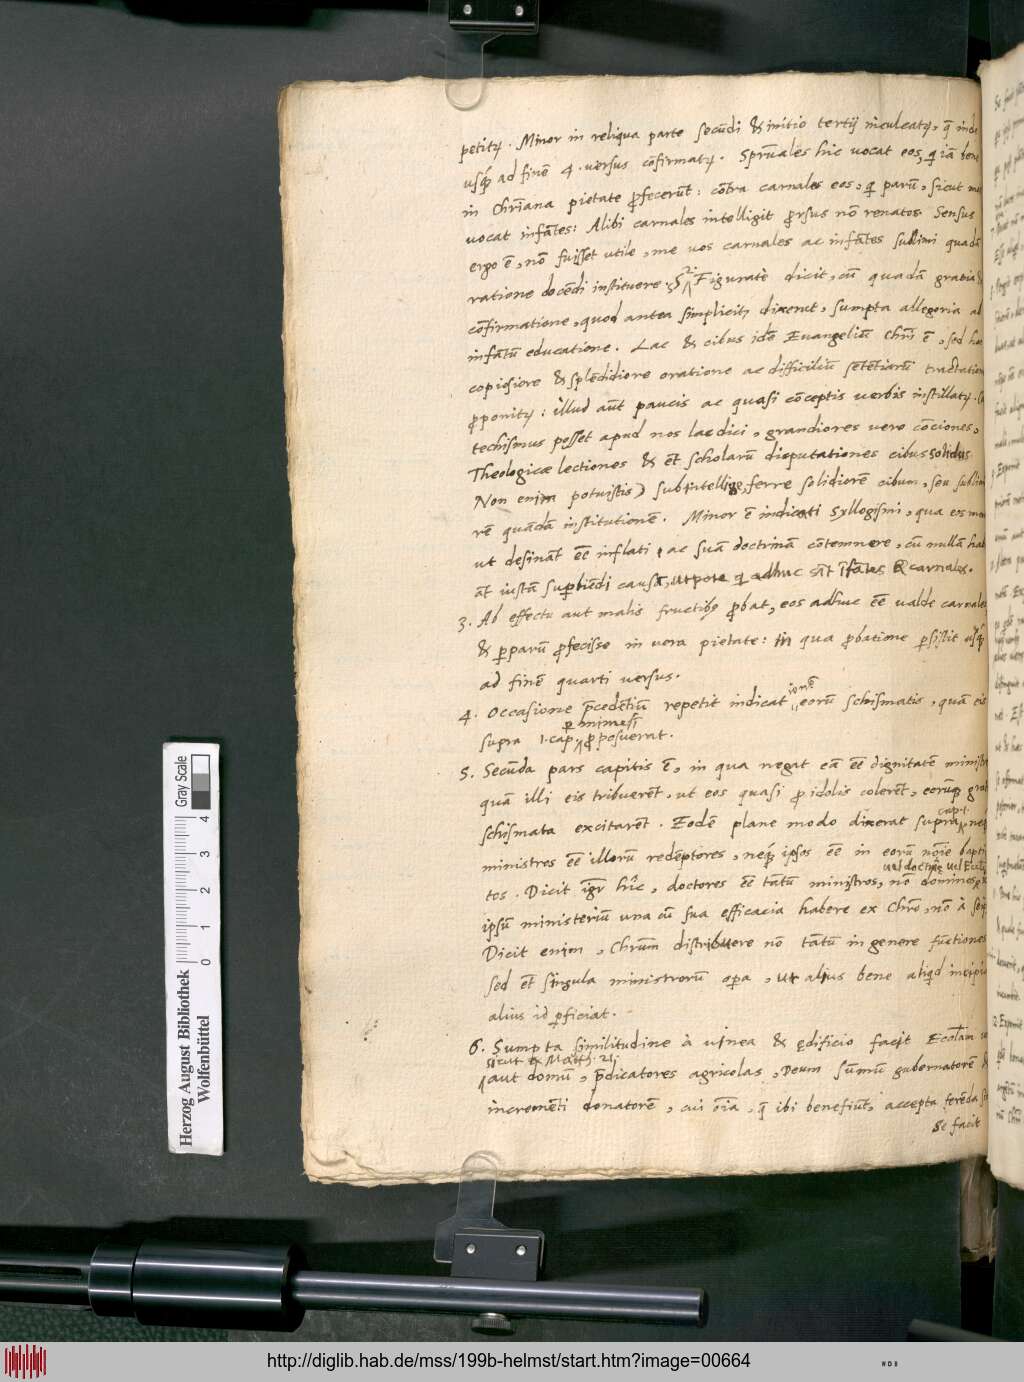 petitꝝ. Minor in reliqua parte secūdi & initio tertij inculcatꝝ, q̄ inde
usq̃ ad finē 4. versus cōfirmatꝝ. Spr̄uales hic vocat eos, q̇ iā bene
in Chr̄iana pietate ꝓfecerūt: cōtra carnales eos, q̇ parū, sicut
vocat infātes: Alibi carnales intelligit ꝓrsus nō renatos. Sensus
ergo ē, nō fuisset utile, me vos carnales ac infātes sublimi quadā
ratione docēdi instituere. 2. Figuratè dicit, cū quadā gratia &
cōfirmatione, quod antea simplicitꝫ dixerat, sumpta allegoria ab
infātū educatione. Lac & cibus idē Evangeliū Chr̄i ē, sed hoc
copiosiore & splēdidiore oratione ac difficiliū sētētiarū tractatione
ꝓponitꝝ: illud aūt paucis ac quasi cōceptis verbis instillatꝝ. Ca
techismus posset apud nos lac dici, grandiores vero cōciones,
Theologicæ lectiones & ēt scholarū disputationes cibus solidus
Non enim potuistis) subintellige, ferre solidiorē cibum, seu sublimio
rē quādā institutionē. Minor ē indicati Syllogismi, qua eos
ut desināt ēē inflati, ac suā doctrinā cōtemnere, cū nullā hab
āt iustā supbiēdi causā, utpote q̇ adhuc sīt īfātes & carnales.
3. Ab effectu aut malis fructibꝫ ꝓbat, eos adhuc ēē valde carnales
& ꝑparū ꝓfecisse in vera pietate: in qua ꝓbatione ꝑsistit usq̃
ad finē quarti versus.
4. Occasione p̄cedētiū repetit indicationē eorū schismatis, quā eis
supra 1. cap. ꝑ mimesī ꝓposuerat.
5. Secūda pars capitis ē, in qua negat eā ēē dignitatē ministro
quā illi eis tribuerēt, ut eos quasi ꝓ idolis colerēt, eorūq̃ gra
schismata excitarēt. Eodē plane modo dixerat supra cap. 1. neq̃
ministros ēē illorū redēptores, neq̃ ipsos ēē in eorū nōīe bapti
tos. Dicit igr̄ hîc, doctores ēē tātū ministros, nō dominos vel doctrinę vel Ecclīę
ipsū ministeriū una cū sua efficacia habere ex Chr̄o, nō à seip
Dicit enim, Chrūm distribuere nō tātū in genere fūctiones
sed ēt singula ministrorū opa, ut alius bene aliq̇d incipiat
alius id ꝑficiat.
6. Sumpta similitudine à vinea & ędificio facit Ecclām
sicut & Matth. 21.
aut domū, p̄dicatores agricolas, Deum sūmū gubernatorē &
incremēti donatorē, cui oīa, q̄ ibi benefiūt, accepta ferēda
Se facit
Herzog August Bibliothek
Wolfenbüttel
Gray Scale
0 1 2 3 4
http://diglib.hab.de/mss/199b-helmst/start.htm?image=00664
WDB